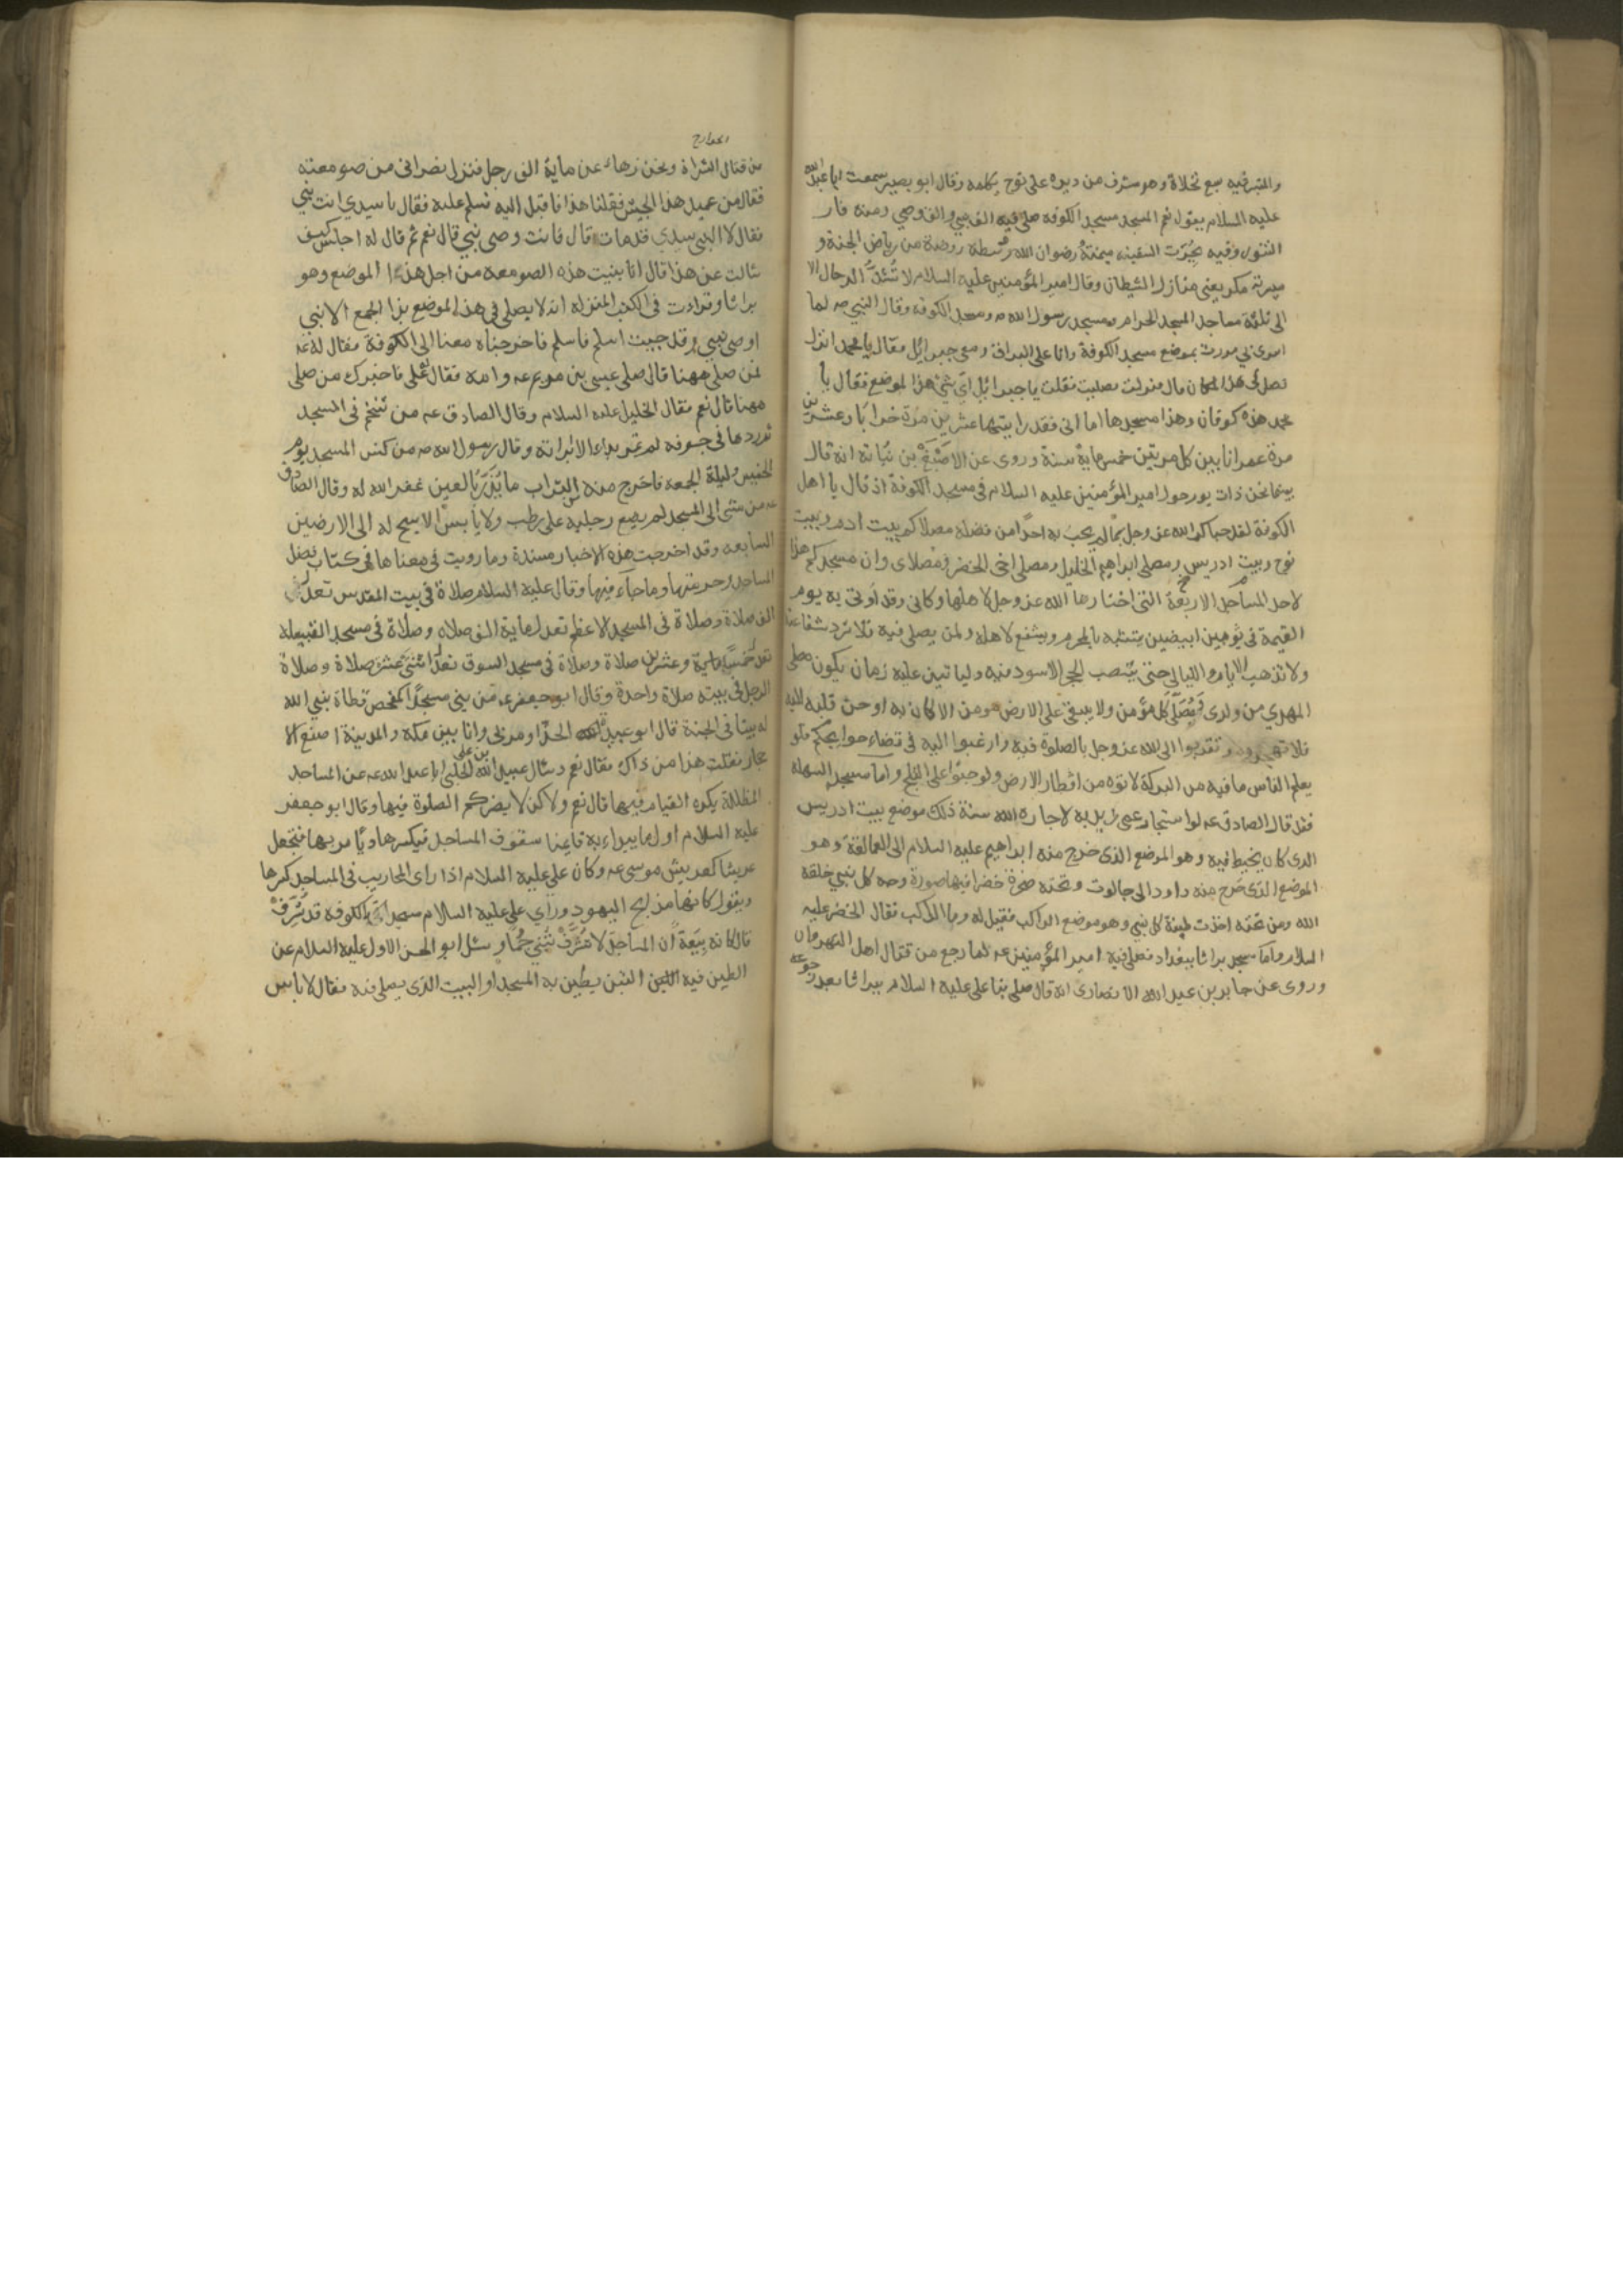 والمتبر فيه سبع نخلاة وهو مشرف من ديره على نوح يكلمه وقال ابو بصير سمعت ابا عبد الله
عليه السلام يقول نعم المسجد مسجد الكوفة صلى فيه الف نبي والف وصي ومنه فار
التنور وفيه نجرت السفينه ميمنته رضوان الله وسطه روضة من رياض الجنة و
ميسرته مكر يعني منازل الشيطان وقال امير المؤمنين عليه السلام لا تشد الرحال الا
الى ثلثة مساجد المسجد الحرام ومسجد رسول الله صه ومسجد الكوفة وقال النبي صه لما
اسرى بي مررت بموضع مسجد الكوفة وانا على البراق ومعي جبرائيل فقال يا محمد انزل
فصل في هذا المكان قال فنزلت فصليت فقلت يا جبرائيل اي شيء هذا الموضع فقال يا
محمد هذه كوفان وهذا مسجدها اما اني فقد رايتها عشرين مرة خرابا وعشرين
مرة عمرانا بين كل مرتين خمسماية سنة وروي عن الاصبغ بن نباتة انه قال
بينما نحن ذات يوم حول امير المؤمنين عليه السلام في مسجد الكوفة اذ قال يا اهل
الكوفة لقد حباكم الله عز وجل بما لم يحب به احدا من فضله مصلاكم بيت ادم وبيت
نوح وبيت ادريس ومصلى ابراهيم الخليل ومصلى اخي الخضر ومصلاى وان مسجدكم هذا
لاحد المساجد الاربعة التي اختارها الله عز وجل لاهلها وكاني وقد اوتى به يوم
القيمة في ثوبين ابيضين يتشبه بالمحرم ويشفع لاهله ولمن يصلي فيه فلا ترد شفاعته
ولا تذهب الايام والليالي حتى ينصب الحجر الاسود فيه ولياتين عليه زمان يكون مصلى
المهدي من ولدى ومصلى كل مؤمن ولا يبقى على الارض مومن الا كان به او حن قلبه اليه
فلا تهجروه وتقربوا الى الله عز وجل بالصلوة فيه وارغبوا اليه في قضاء حوايجكم فلو
يعلم الناس ما فيه من البركة لاتوه من اقطار الارض ولو حبوا على الثلج واما مسجد السهلة
فقد قال الصادق عه لو استجار عمى زيد به لاجاره الله سنة ذلك موضع بيت ادريس
الذي كان يخيط فيه وهو الموضع الذى خرج منه ابراهيم عليه السلام الى العمالقة وهو
الموضع الذى خرج منه داود الى جالوت وتحته صخرة خضرا فيها صورة وجه كل نبي خلقه
الله ومن تحته اخذت طينة كل نبي وهو موضع الراكب فقيل له وما الراكب فقال الخضر عليه
السلام واما مسجد براثا ببغداد فصلى فيه امير المؤمنين عه لما رجع من قتال اهل النهروان
وروى عن جابر بن عبد الله الانصارى انه قال صلى بنا علي عليه السلام ببراثا بعد رجوعه
الخوارج
من قتال الشراة ونحن زهاء عن ماية الف رجل فنزل نصراني من صومعته
فقال من عميد هذا الجيش فقلنا هذا فاقبل اليه فسلم عليه فقال يا سيدي انت نبي
فقال لا النبي سيدي قد مات قال فانت وصي نبي قال نعم ثم قال له اجلس كيف
سالت عن هذا قال انا بنيت هذه الصومعة من اجل هذا الموضع وهو
براثا وقراءت في الكتب المنزلة انه لا يصلى في هذا الموضع بذا الجمع الا نبي
او وصي نبي وقد جيت اسلم فاسلم فاخرجناه معنا الى الكوفة فقال له عه
فمن صلى ههنا قال صلى عيسى بن مريم عه وامه فقال علي فاخبرك من صلى
ههنا قال نعم فقال الخليل عليه السلام وقال الصادق عه من تنخم في المسجد
ثم ردها في جوفه لم تمر بداء الا ابراته وقال رسول الله صه من كنس المسجد يوم
الخميس وليلة الجمعة فاخرج منه من التراب ما يذر بالعين غفر الله له وقال الصادق
عه من مشى الى المسجد لم يضع رجليه على رطب ولا يابس الا يسبح له الى الارضين
السابعه وقد اخرجت هذه الاخبار مسندة وما رويت في معناها في كتاب فضل
المساجد وحرمتها وما جاء فيها وقال عليه السلام صلاة في بيت المقدس تعدل
الف صلاة وصلاة في المسجد الاعظم تعدل ماية الف صلاه وصلاة في مسجد القبيلة
تعدل خمسا وعشرين صلاة وصلاة في مسجد السوق تعدل اثنتي عشرة صلاة وصلاة
الرجل في بيته صلاة واحدة وقال ابو جعفر عه من بنى مسجدا كمفحص قطاة بنى الله
له بيتا في الجنة قال ابو عبيدة الحذا ومر بي وانا بين مكة والمدينة اضع الا
حجار فقلت هذا من ذاك فقال نعم وسال عبيد الله بن علي الحلبي ابا عبد الله عه عن المساجد
المظللة يكره القيام فيها قال نعم ولاكن لا يضركم الصلوة فيها وقال ابو جعفر
عليه السلام اول ما يبداء به قايمنا سقوف المساجد فيكسرها ويامر بها فتجعل
عريشا كعريش موسى عه وكان علي عليه السلام اذا راى المحاريب في المساجد كسرها
ويقول كانها مذابح اليهود وراي علي عليه السلام مسجدا بالكوفة قد شرف
قال كانه بيعة ان المساجد لا تشرف تبني جما وسئل ابو الحسن الاول عليه السلام عن
الطين فيه التبن يطين به المسجد او البيت الذى يصلي فيه فقال لا باس